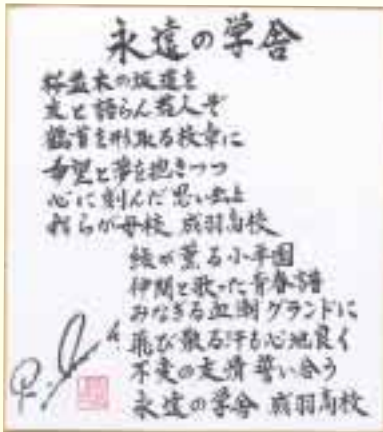 永遠の学舎
桜並木の坂道を
友と語らん若人ぞ
鶴首を形取る校章に
希望と夢を抱きつつ
心に刻んだ思い出よ
我らが母校 成羽高校
緑が薫る小平園
仲間と歌った青春譜
みなぎる血潮グランドに
飛び散る汗も心地良く
不変の友情誓い合う
永遠の学舎 成羽高校